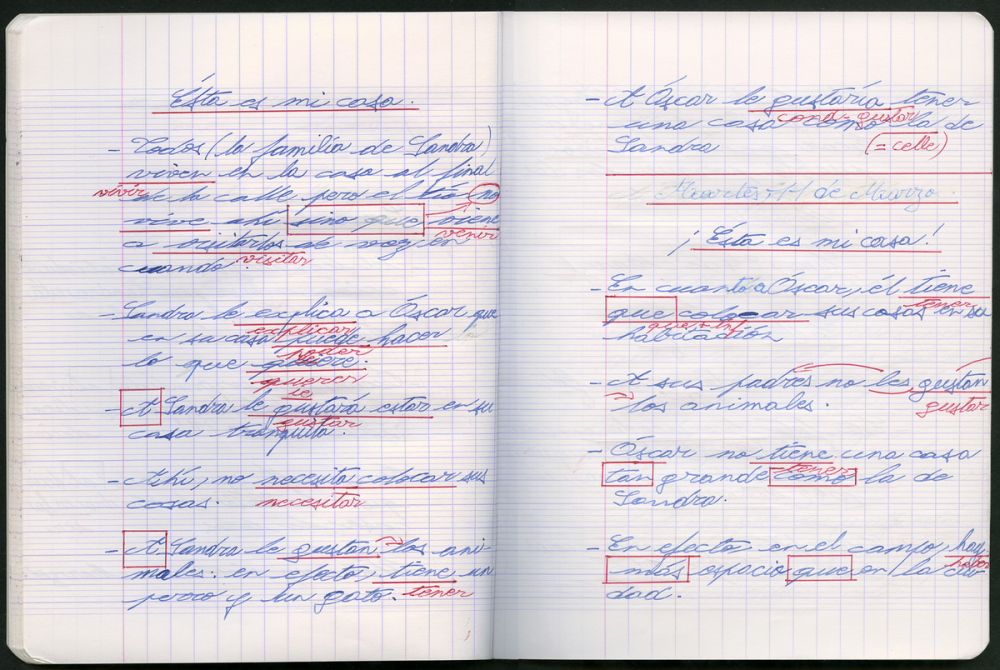 Ésta es mi casa.
- Todos (la familia de Sandra)
viven en la casa al final
vivir de la calle pero el tío no
vive ahí sino que viene
venir
a visitarlos de vez en
cuando. visitar
- Sandra le explica a Óscar que
explicar
en su casa puede hacer
poder
lo que quiere.
querer
ie
- A Sandra le gustará estar en su
gustar
casa tranquila.
- Ahí, no necesita colocar sus
cosas. necesitar
- A Sandra le gustan los ani-
males: en efecto, tiene un
perro y un gato. tener
- A Óscar le gustaría tener
cond. gustar
una casa como la de
Sandra (= celle)
Martes, 11 de Marzo.
¡Ésta es mi casa!
- En cuanto a Óscar, él tiene
tener
que colocar sus cosas en su
que + inf
habitación
- A sus padres no les gustan
los animales. gustar
- Óscar no tiene una casa
tener
tan grande como la de
Sandra.
- En efecto en el campo, hay
haber
más espacio que en la ciu
dad.